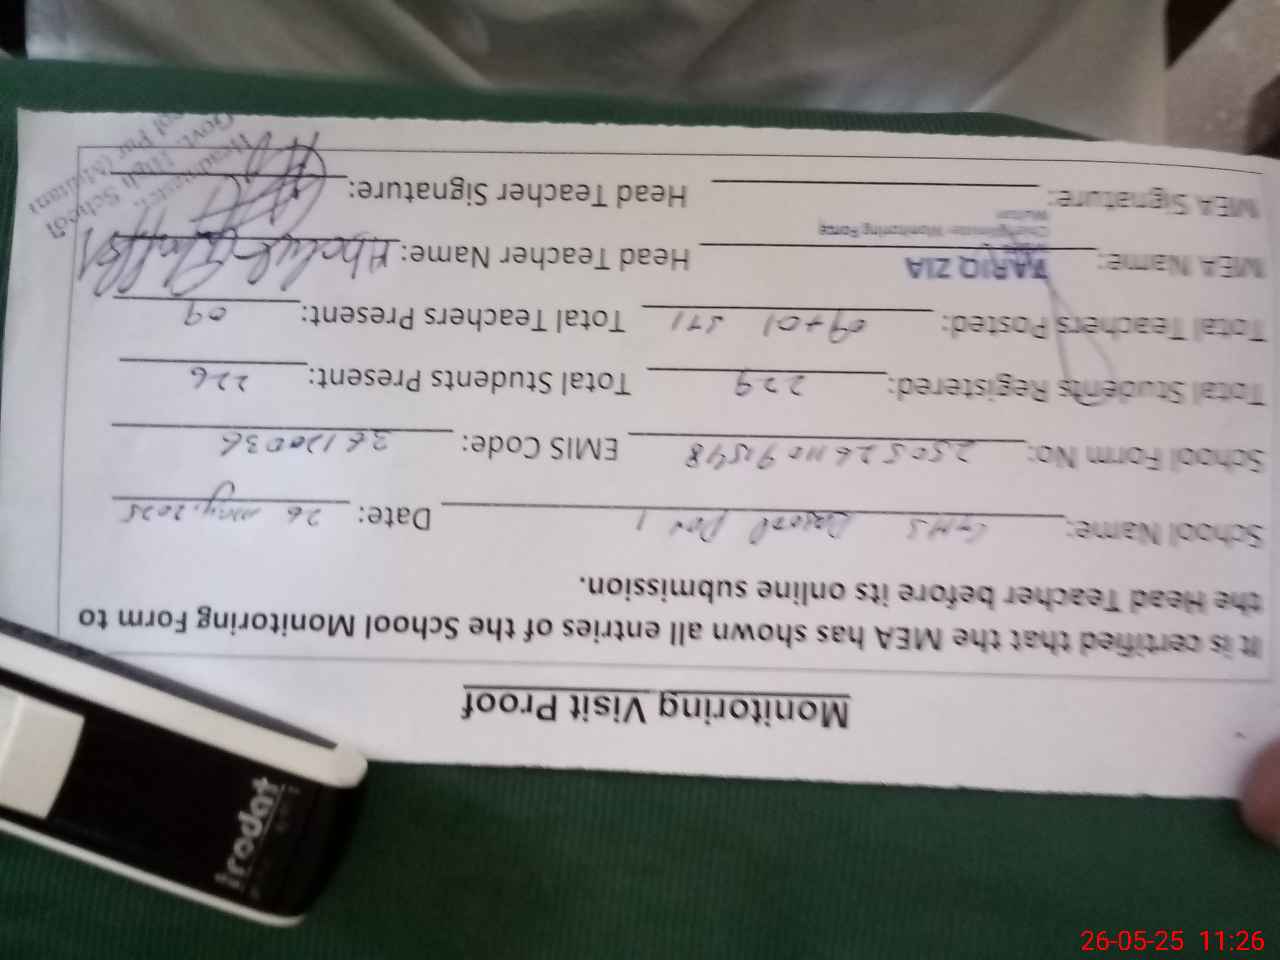 Monitoring Visit Proof
It is certified that the MEA has shown all entries of the School Monitoring Form to
the Head Teacher before its online submission.
School Name: GHS Rasool Pur Date: 26 May, 2025
School Form No: EMIS Code:
Total Students Registered: 229 Total Students Present: 226
Total Teachers Posted: 09+01 Total Teachers Present: 09
MEA Name: TARIQ ZIA Head Teacher Name: Abdul
Monitoring Force
MEA Signature: Head Teacher Signature:
Headmaster
Govt. High School
Pur (Multan)
trodat
26-05-25 11:26